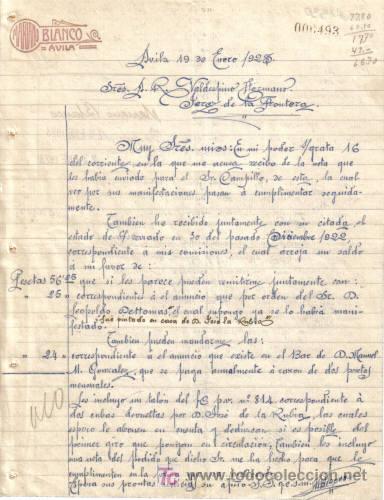 MARIANO BLANCO
AVILA
000493
Avila 19 de Enero/1923
Sres. A. R. Valdespino Hermano
Jerez de la Frontera.
Muy Sres. mios: En mi poder su grata 16
del corriente en la que me acusa recibo de la nota que
les habia enviado para el Sr. Campillo, de esta, la cual
ver por sus manifestaciones pasan á cumplimentar seguida-
mente.
Tambien he recibido juntamente con su citada el
estado de cerrado en 30 del pasado Diciembre/1922
correspondiente á mis comisiones, el cual arroja un saldo
á mi favor de:
Pesetas 56'25 que si les parece pueden remitirme juntamente con:
" 25 " correspondientes á el anuncio que por orden del Sr. D.
Leopoldo el cual supongo ya se lo habrá mani-
festado. fué pintado en casa de D. José la Rubia
Tambien pueden mandarme las:
" 24 " correspondiente á el anuncio que existe en el Bar de D. Manuel
M. Gonzalez, que se paga anualmente á razon de dos pesetas
mensuales.
Les incluyo un talon del f.c. p.v. nº 814 correspondiente á
dos cubas devueltas por D. José de la Rubia, las cuales
espero le abonen en cuenta y deduzcan, si es posible del
primer giro que pongan en circulación; Tambien les incluyo
una nota del pedido que dicho Sr. me ha hecho para que le
cumplimenten a la
sus prontas
todocoleccion.net